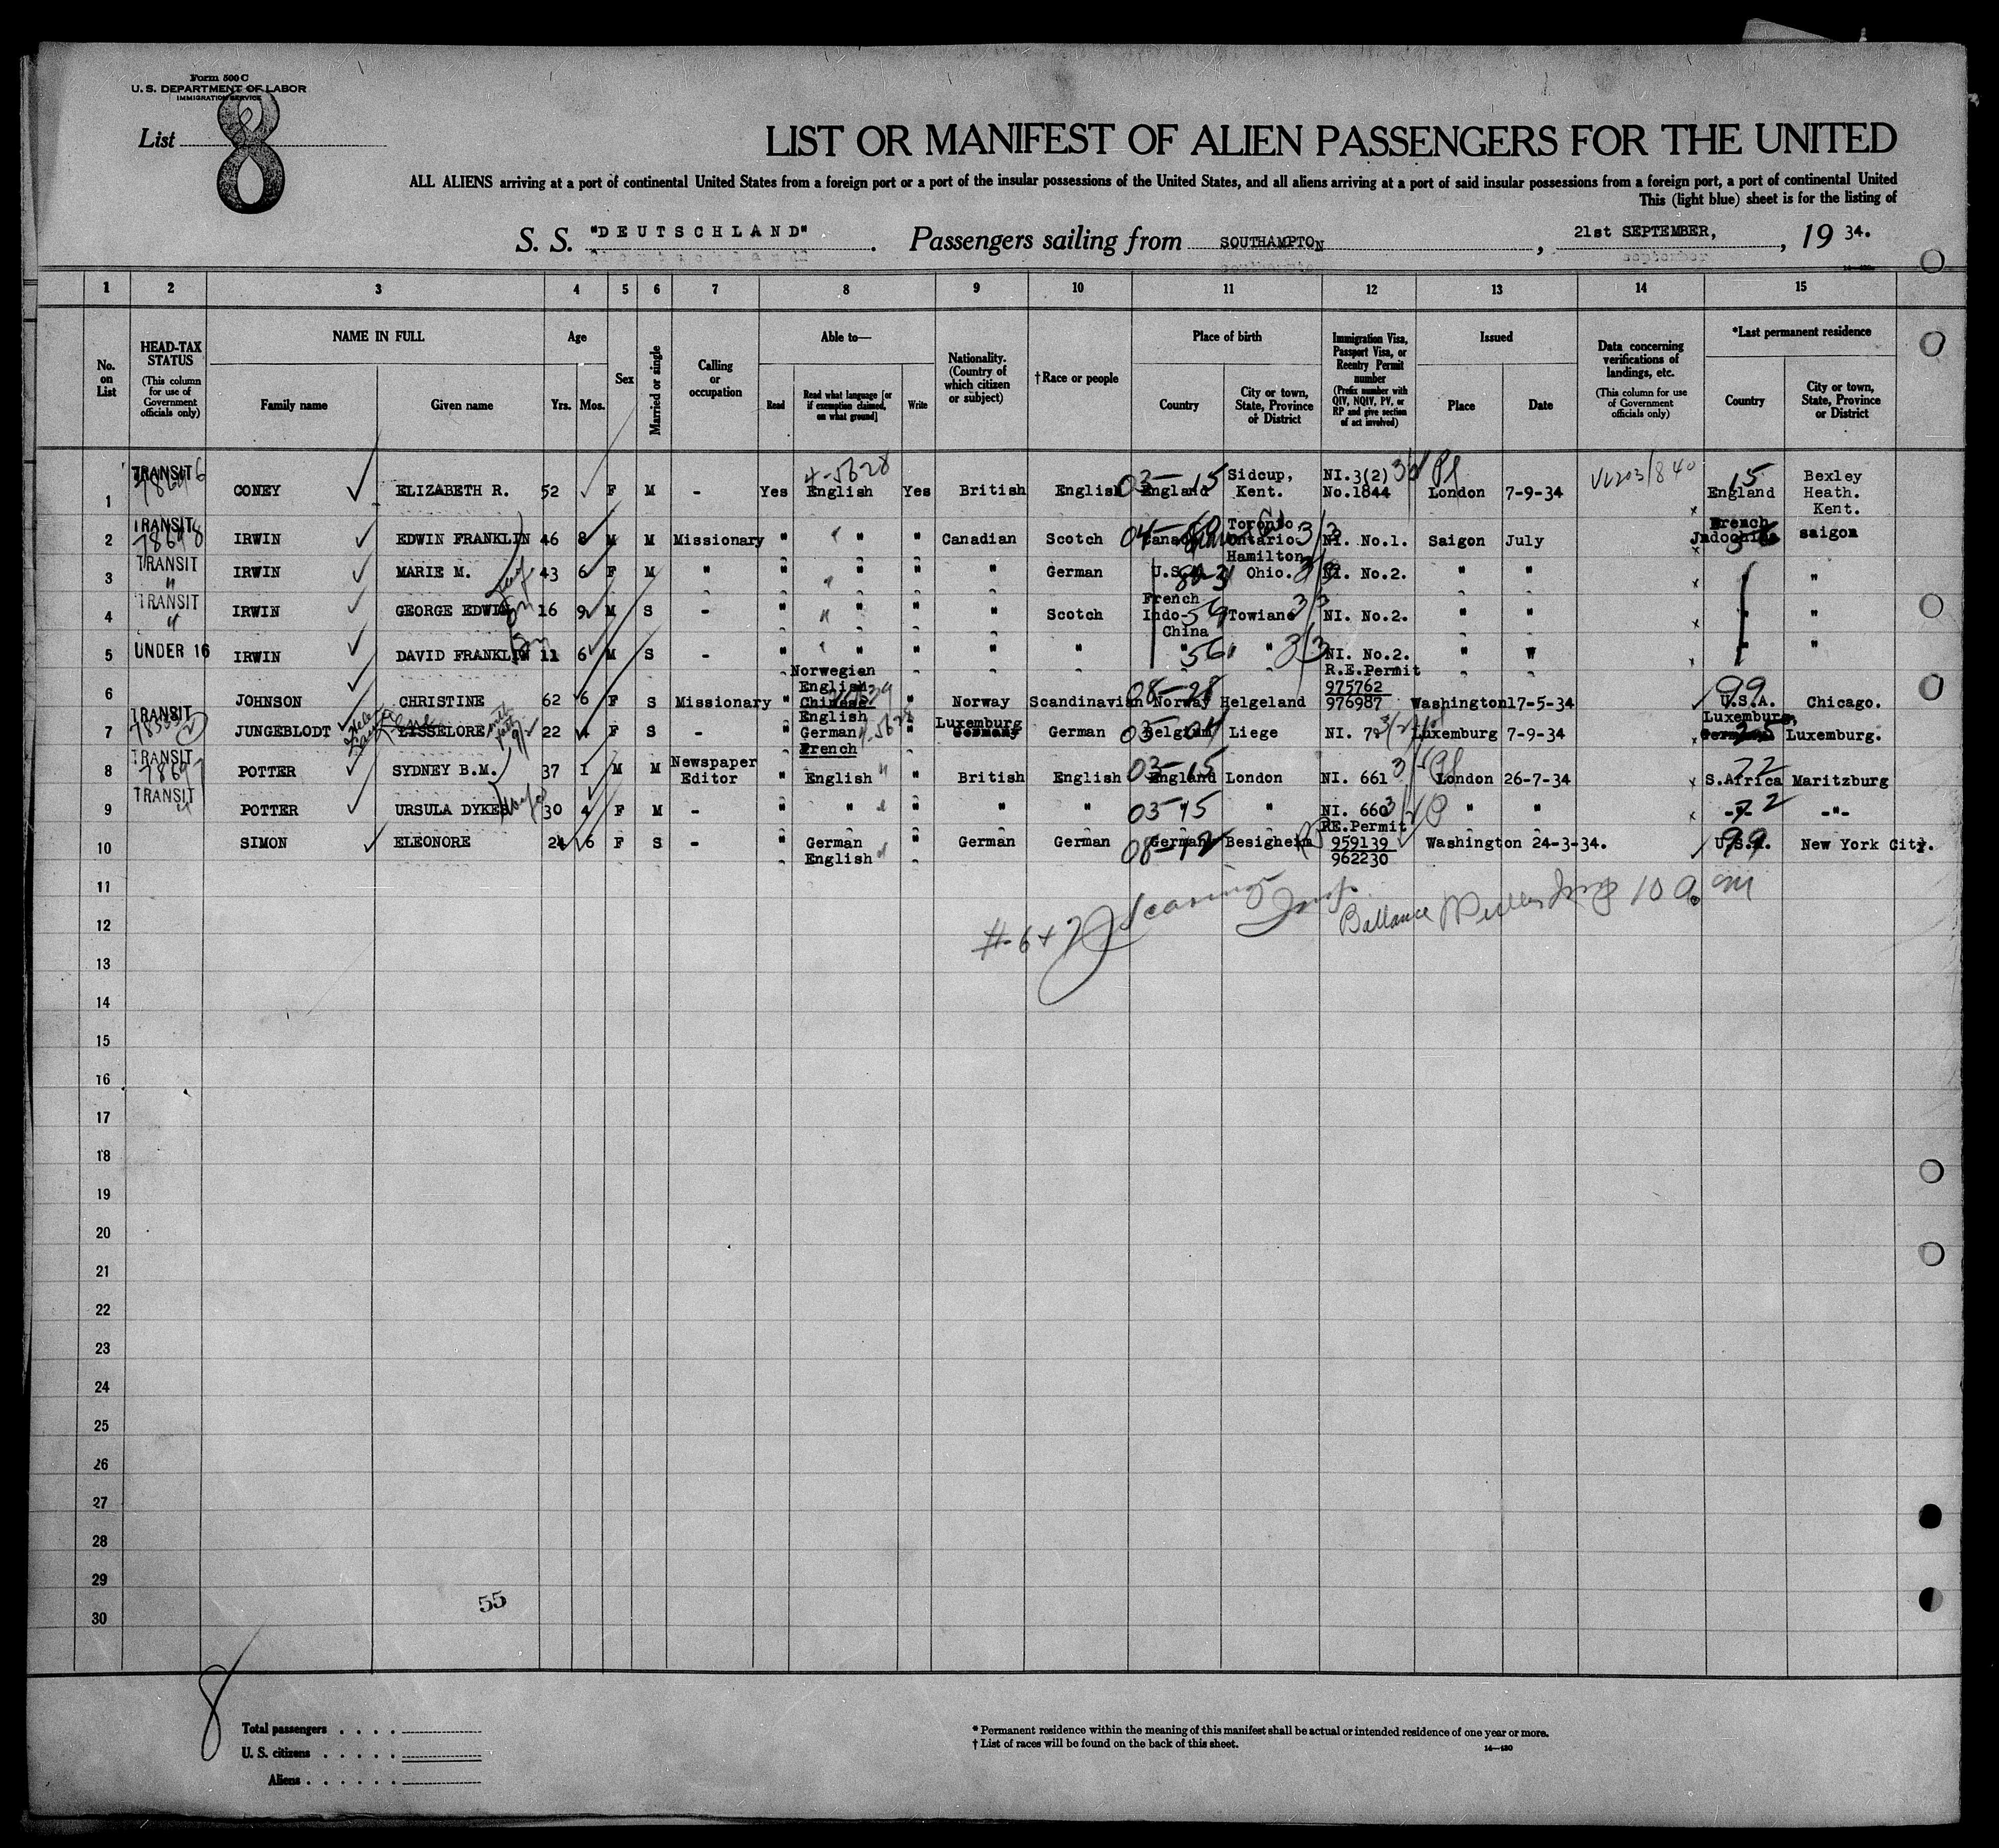 Form 500 C
U. S. DEPARTMENT OF LABOR
IMMIGRATION SERVICE
List 8
LIST OR MANIFEST OF ALIEN PASSENGERS FOR THE UNITED
ALL ALIENS arriving at a port of continental United States from a foreign port or a port of the insular possessions of the United States, and all aliens arriving at a port of said insular possessions from a foreign port, a port of continental United
This (light blue) sheet is for the listing of
S. S. "DEUTSCHLAND". Passengers sailing from SOUTHAMPTON, 21st SEPTEMBER, 1934.
1 2 3 4 5 6 7 8 9 10 11 12 13 14 15
No. on List
HEAD-TAX STATUS (This column for use of Government officials only)
NAME IN FULL
Family name Given name
Age
Yrs. Mos.
Sex
Married or single
Calling or occupation
Able to—
Read Read what language [or if exemption claimed, on what ground] Write
Nationality. (Country of which citizen or subject)
†Race or people
Place of birth
Country City or town, State, Province or District
Immigration Visa, Passport Visa, or Reentry Permit number (Prefix number with QIV, NQIV, PV, or RP and give section of act involved)
Issued
Place Date
Data concerning verifications of landings, etc. (This column for use of Government officials only)
*Last permanent residence
Country City or town, State, Province or District
1 TRANSIT 78696 CONEY ELIZABETH R. 52 F M - Yes English 4-5628 Yes British English England 03-15 Sidcup, Kent. NI.3(2) No.1844 London 7-9-34 England 15 Bexley Heath. Kent.
2 TRANSIT 78698 IRWIN EDWIN FRANKLIN 46 8 M M Missionary " " " Canadian Scotch Canada Toronto Ontario 3/3 NI. No.1. Saigon July French Indochina saigon
3 TRANSIT " IRWIN MARIE M. 43 6 F M " " " " " German U.S. Hamilton Ohio. 3/3 NI. No.2. " " "
4 TRANSIT " IRWIN GEORGE EDWIN 16 9 M S - " " " " Scotch French Indo-China 56 Towiane 3/3 NI. No.2. " " "
5 UNDER 16 IRWIN DAVID FRANKLIN 11 6 M S - " " " " " " 56 " 3/3 NI. No.2. " " "
6 JOHNSON CHRISTINE 62 6 F S Missionary " Norwegian English Chinese " Norway Scandinavian Norway 08-28 Helgeland R.E.Permit 975762 976987 Washington 17-5-34 U.S.A. 99 Chicago.
7 TRANSIT JUNGEBLODT LISSELORE 22 4 F S - " English German French " Luxemburg Germany German Belgium 03-04 Liege NI. Luxemburg 7-9-34 Luxemburg, Germany Luxemburg.
8 TRANSIT 78697 POTTER SYDNEY B.M. 37 1 M M Newspaper Editor " English " British English England 03-15 London NI. 661 London 26-7-34 S.Africa 72 Maritzburg
9 TRANSIT " POTTER URSULA DYKES 30 4 F M - " " " " " 03-15 " NI. 660 " " -"- 72 -"-
10 SIMON ELEONORE 24 6 F S - " German English " German German Germany 08-12 Besigheim RE.Permit 959139 962230 Washington 24-3-34. U.S.A. 99 New York City.
11
12 #-6+7
13
14
15
16
17
18
19
20
21
22
23
24
25
26
27
28
29
30
55
8
Total passengers . . . .
U. S. citizens . . . . .
Aliens . . . . . .
* Permanent residence within the meaning of this manifest shall be actual or intended residence of one year or more.
† List of races will be found on the back of this sheet.
14—430